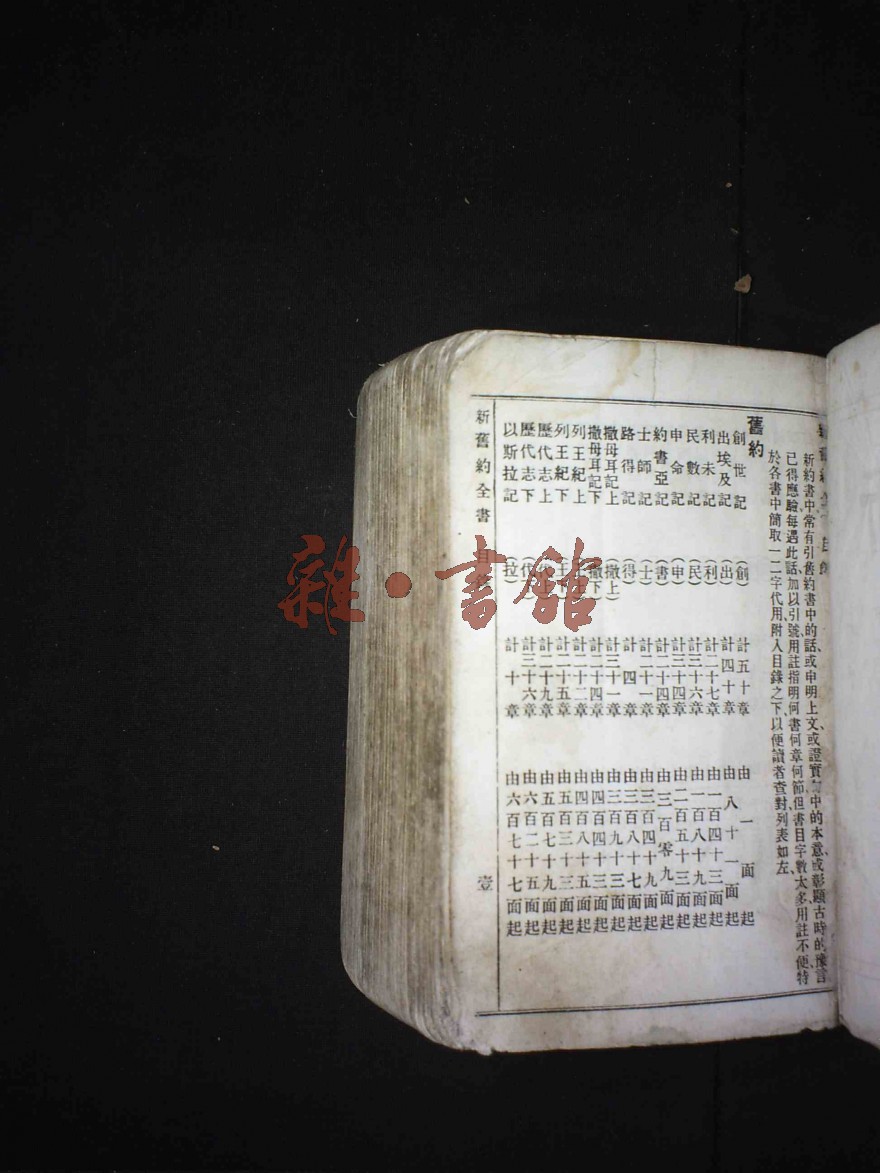 新約書中常有引舊約書中的話、或申明上文、或證實書中的本意、或彰顯古時的豫言
已得應驗、每遇此話、加以引號、用註指明何書何章何節、但書目字數太多、用註不便、特
於各書中簡取一二字代用、附入目錄之下、以便讀者查對、列表如左、
舊約
創世記 (創) 計五十章 由一面起
出埃及記 (出) 計四十章 由八十一面起
利未記 (利) 計二十七章 由一百四十三面起
民數記 (民) 計三十六章 由一百八十九面起
申命記 (申) 計三十四章 由二百五十三面起
約書亞記 (書) 計二十四章 由三百零九面起
士師記 (士) 計二十一章 由三百四十九面起
路得記 (得) 計四章 由三百八十七面起
撒母耳記上 (撒上) 計三十一章 由三百九十三面起
撒母耳記下 (撒下) 計二十四章 由四百四十三面起
列王紀上 計二十二章 由四百八十五面起
列王紀下 計二十五章 由五百三十三面起
歷代志上 計二十九章 由五百七十九面起
歷代志下 (代下) 計三十六章 由六百二十五面起
以斯拉記 (拉) 計十章 由六百七十七面起
新舊約全書 目 壹
雜·書館